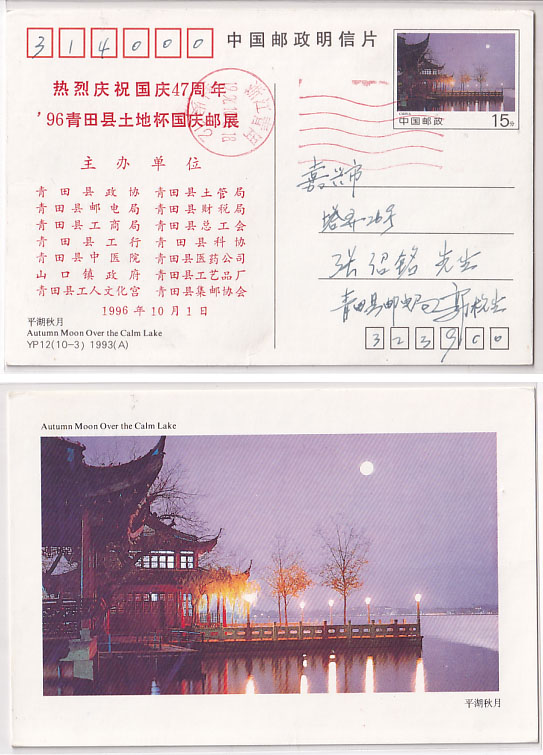 314000
中国邮政明信片
中国邮政 15分
热烈庆祝国庆47周年
'96青田县土地杯国庆邮展
主办单位
青田县政协 青田县土管局
青田县邮电局 青田县财税局
青田县工商局 青田县总工会
青田县工行 青田县科协
青田县中医院 青田县医药公司
山口镇政府 青田县工艺品厂
青田县工人文化宫 青田县集邮协会
1996年10月1日
浙江青田
嘉兴市
张绍铭先生
青田县邮
323900
平湖秋月
Autumn Moon Over the Calm Lake
YP12(10-3) 1993(A)
Autumn Moon Over the Calm Lake
平湖秋月